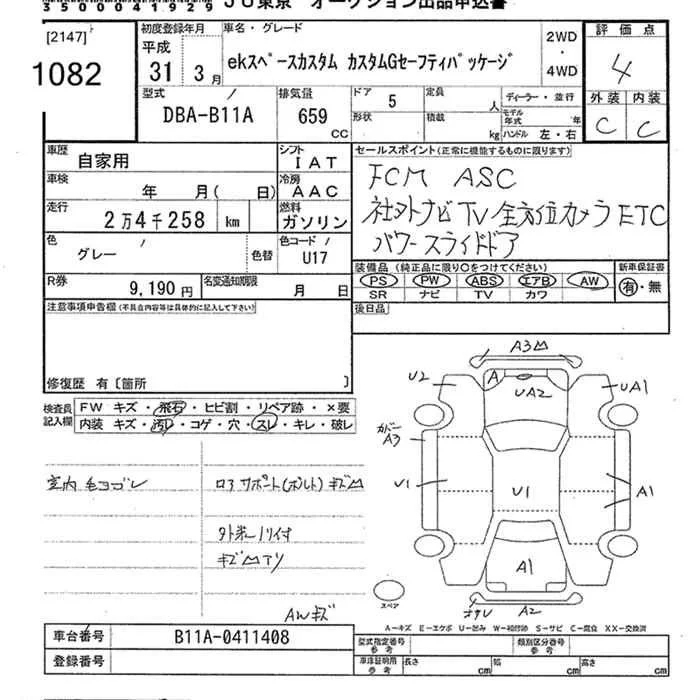 350004 1929 JU東京 オークション出品申込書
[2147]
1082
初度登録年月
平成
31 3月
車名・グレード
ekスペースカスタム カスタムGセーフティパッケージ
2WD
・
4WD
評価点
4
外装 内装
C C
型式
DBA-B11A
排気量
659
CC
ドア 5
形状
定員 人
積載 kg
ディーラー・並行
モデル年式 年
ハンドル 左・右
車歴
自家用
シフト
IAT
車検
年 月( 日)
冷房
AAC
走行
2万4千258 km
燃料
ガソリン
色
グレー
色替
色コード
U17
R券
9,190円
名変通知期限
月 日
セールスポイント(正常に機能するものに限ります)
FCM ASC
社外ナビ TV 全方位カメラ ETC
パワースライドドア
装備品(純正品に限り○をつけてください)
PS PW ABS エアB AW
SR ナビ TV カワ
新車保証書
有・無
後日品
注意事項申告欄(不具合内容等は具体的に記入して下さい)
修復歴 有〔箇所 〕
検査員
記入欄
FW キズ・飛石・ヒビ割・リペア跡・×要
内装 キズ・汚レ・コゲ・穴・スレ・キレ・破レ
室内 毛ヨゴレ
ロアサポート(ボルト)キズ
キズ
AWキズ
A3
U2
A
UA2
UA1
カバー
A3
U1
U1
A1
A1
A2
スペア
A-キズ E-エクボ U-凹み W-補修跡 S-サビ C-腐食 XX-交換済
車台番号
B11A-0411408
登録番号
型式指定番号
参考
類別区分番号
参考
車庫証明用
参考
長さ cm
幅 cm
高さ cm